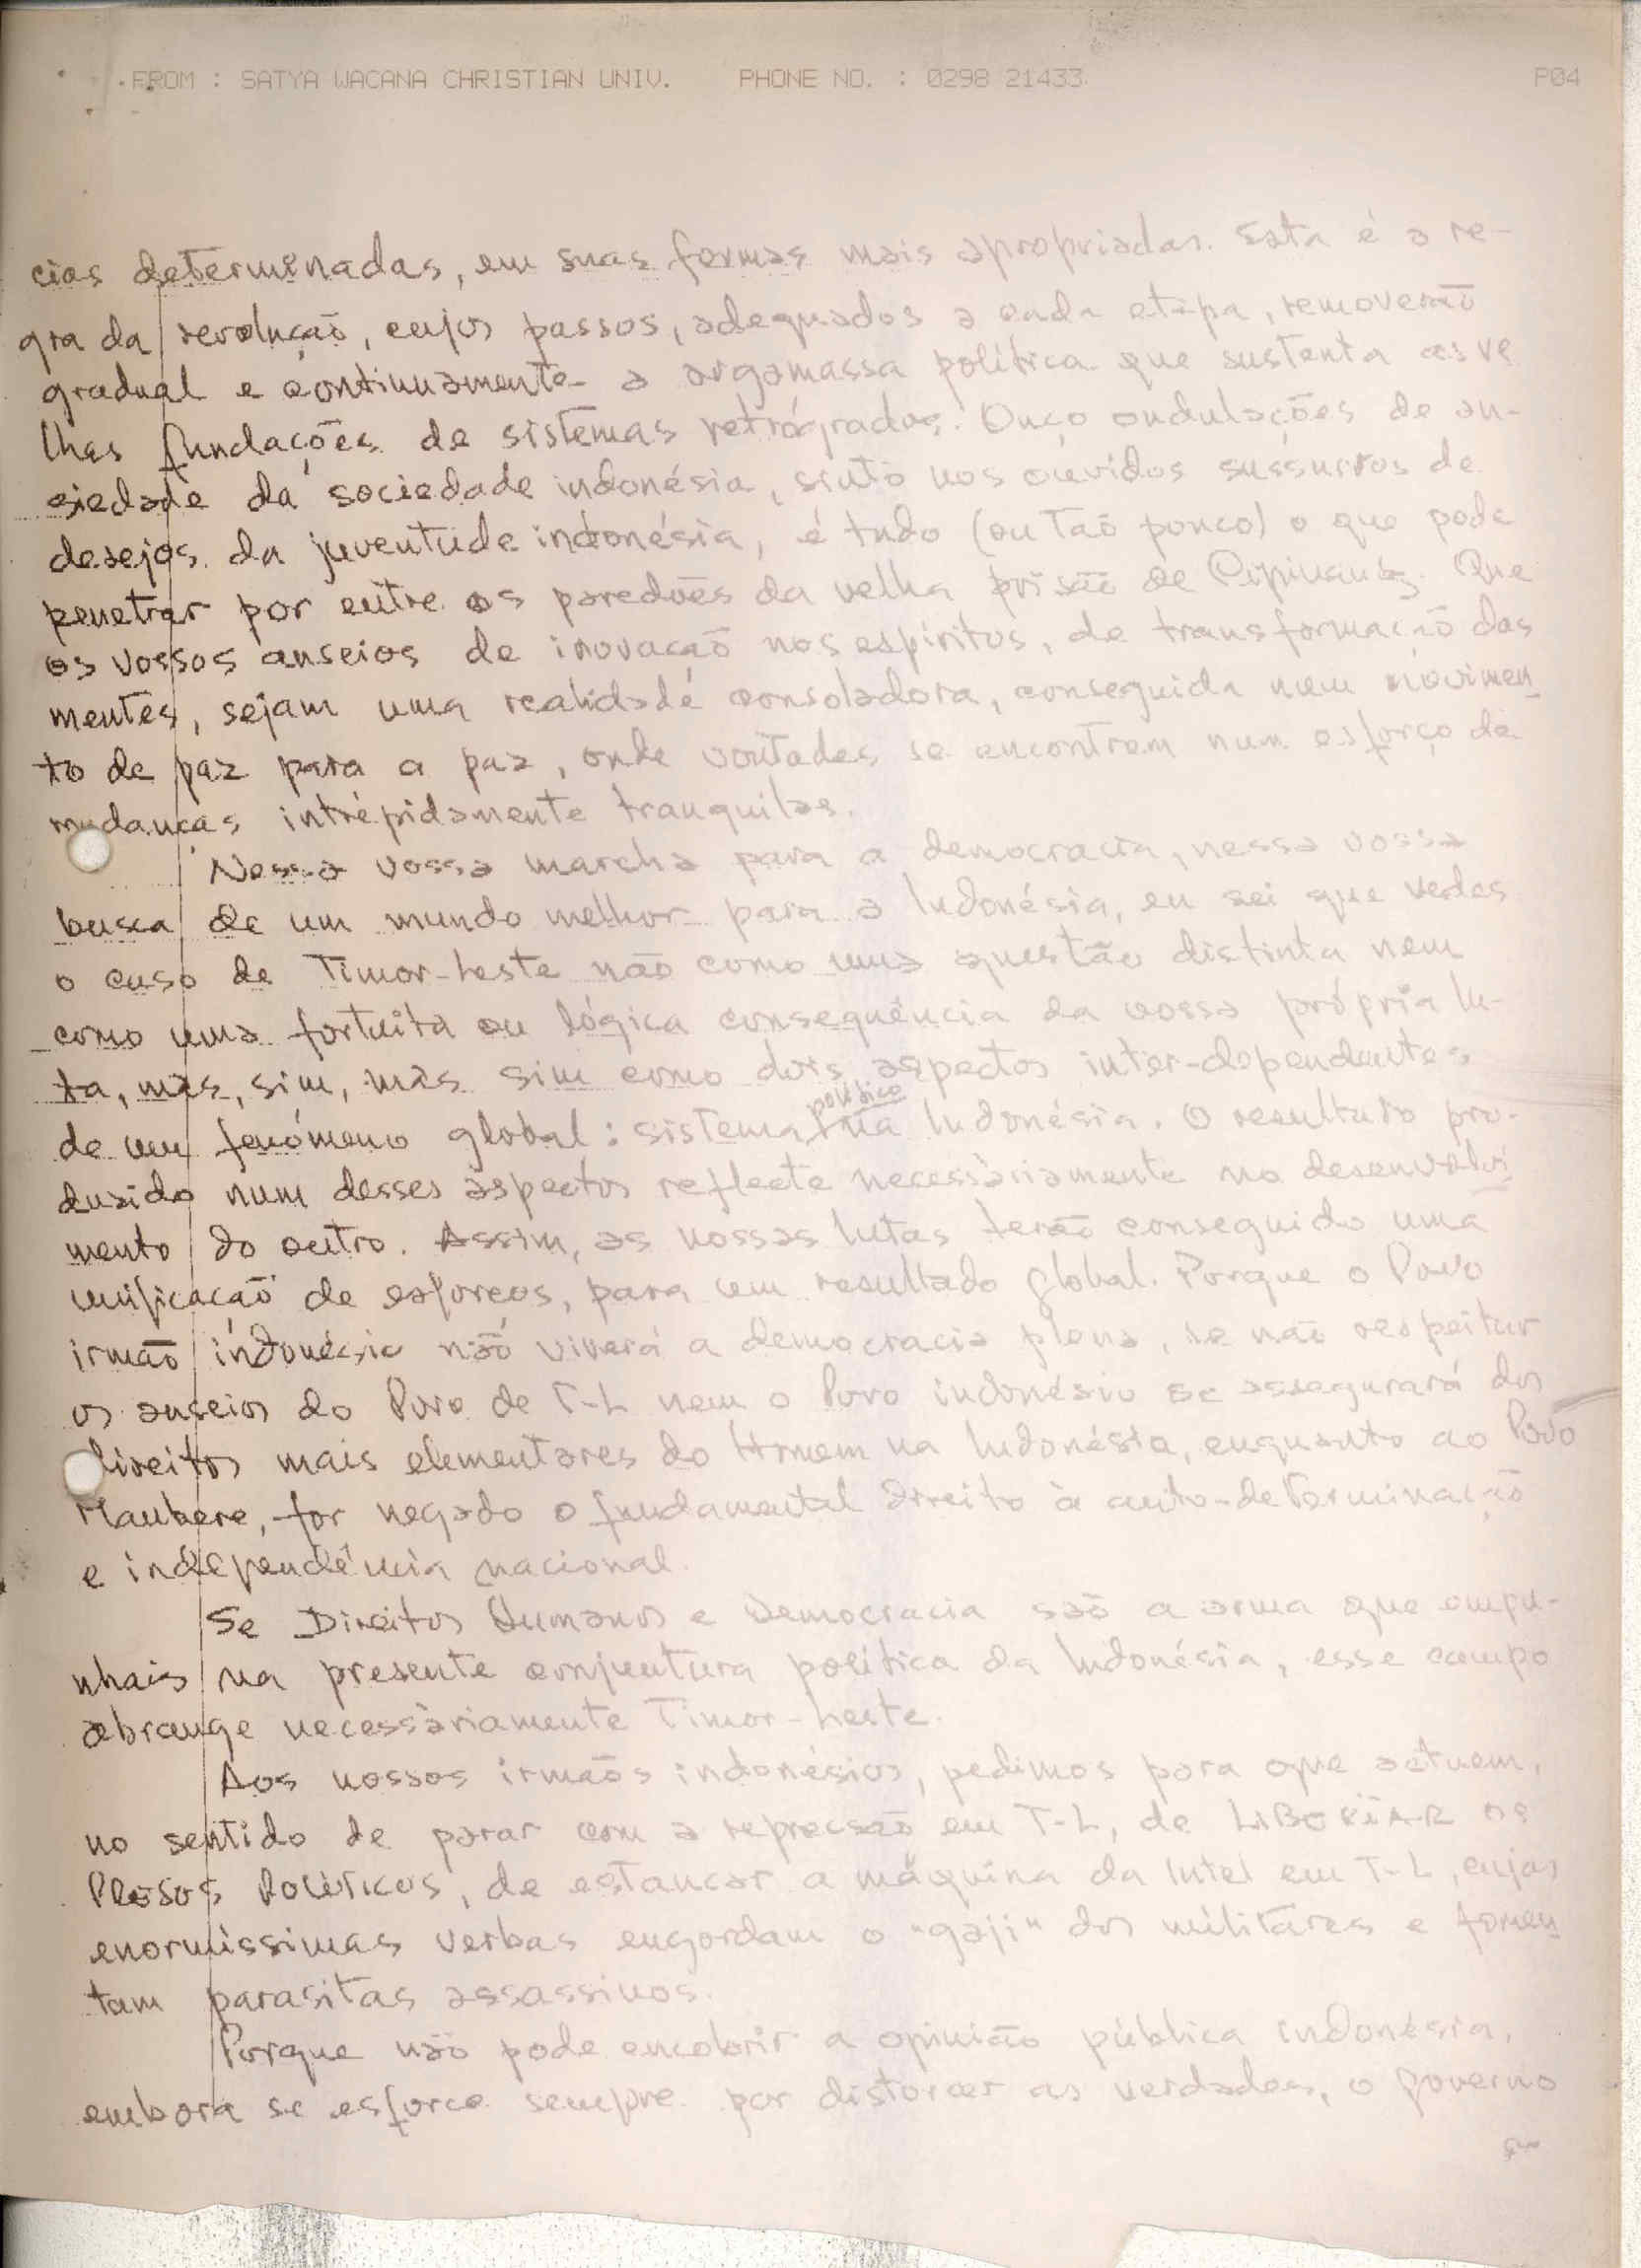 FROM : SATYA WACANA CHRISTIAN UNIV. PHONE NO. : 0298 21433 P04
cias determinadas, em suas formas mais apropriadas. Esta é a re-
gra da revolução, cujos passos, adequados a cada etapa, removerão
gradual e continuamente a argamassa política que sustenta as ve
lhas fundações de sistemas retrógrados. Ouço ondulações de an-
siedade da sociedade indonésia, sinto nos ouvidos sussurros de
desejos da juventude indonésia, é tudo (ou tão pouco) o que pode
penetrar por entre os paredões da velha prisão de Cipinang. Que
os vossos anseios de inovação nos espíritos, de transformação das
mentes, sejam uma realidade consoladora, conseguida num movimen
to de paz para a paz, onde vontades se encontrem num esforço de
mudanças intrépidamente tranquilas.
Nessa vossa marcha para a democracia, nessa vossa
busca de um mundo melhor para a Indonésia, eu sei que vedes
o caso de Timor-Leste não como uma questão distinta nem
como uma fortuita ou lógica consequência da vossa própria lu-
ta, mas, sim, mas sim como dois aspectos inter-dependentes
de um fenómeno global: sistema político na Indonésia. O resultado pro-
duzido num desses aspectos reflecte necessàriamente no desenvolvi
mento do outro. Assim, as nossas lutas terão conseguido uma
unificação de esforços, para um resultado global. Porque o Povo
irmão indonésio não viverá a democracia plena, se não respeitar
os anseios do Povo de T-L nem o Povo indonésio se assegurará dos
direitos mais elementares do Homem na Indonésia, enquanto ao Povo
Maubere, for negado o fundamental direito à auto-determinação
e independência nacional.
Se Direitos Humanos e Democracia são a arma que empu-
nhais na presente conjuntura política da Indonésia, esse campo
abrange necessàriamente Timor-Leste.
Aos nossos irmãos indonésios, pedimos para que actuem,
no sentido de parar com a repressão em T-L, de LIBERTAR os
PRESOS POLÍTICOS, de estancar a máquina da Intel em T-L, cujas
enormíssimas verbas engordam o "gaji" dos militares e fomen
tam parasitas assassinos.
Porque não pode encobrir a opinião pública indonésia,
embora se esforce sempre por distorcer as verdades, o governo